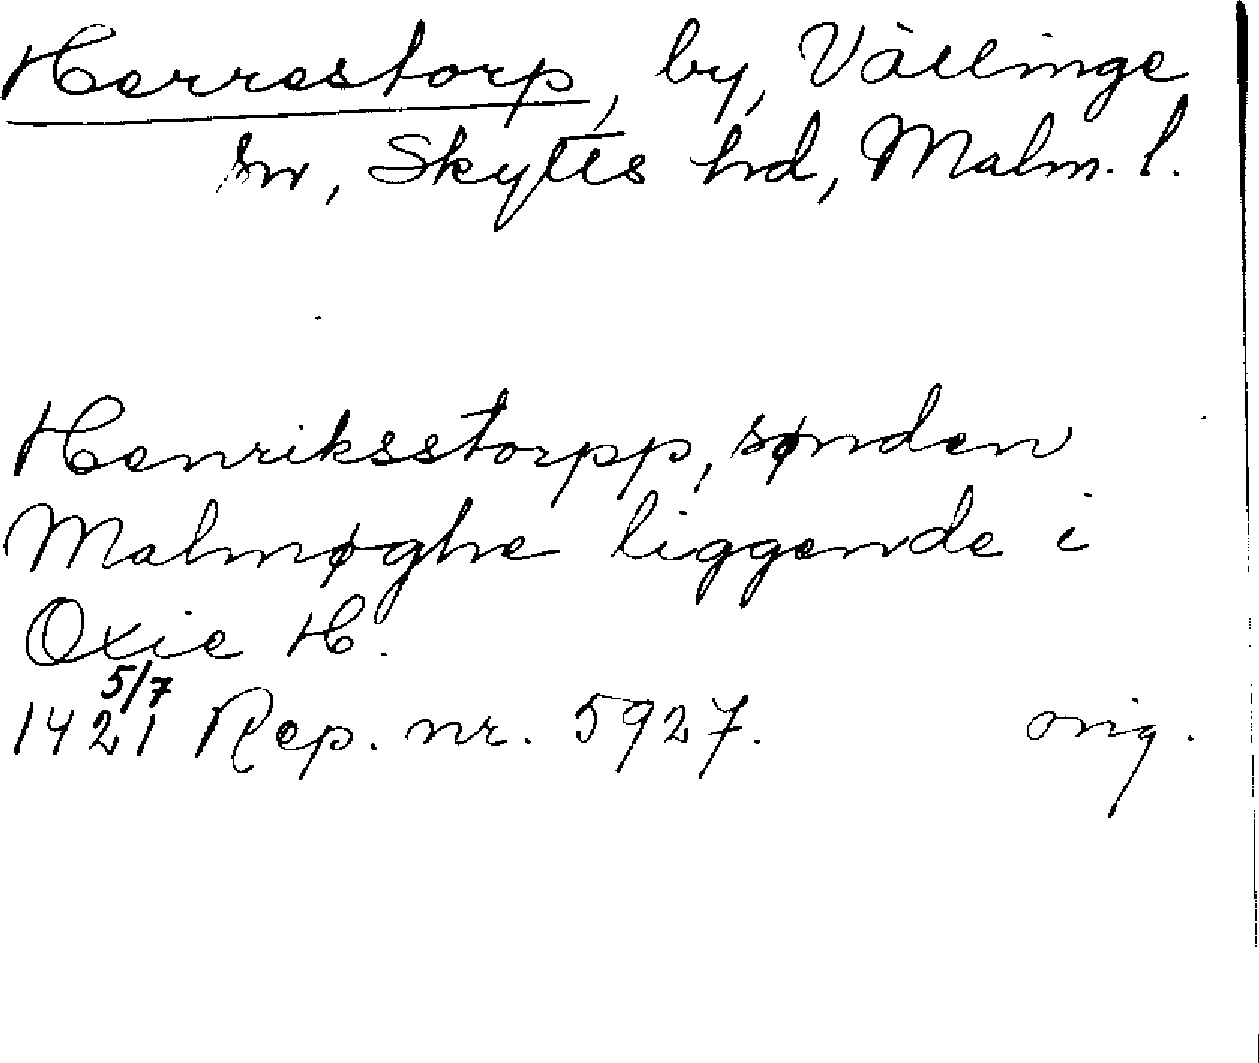 Herrestorp, by, Vällinge
sn, Skytts hd, Malm. l.
Henriksstorpp, sønden
Malmøghe liggende i
Oxie H.
5/7
1421 Rep. nr. 5927. orig.